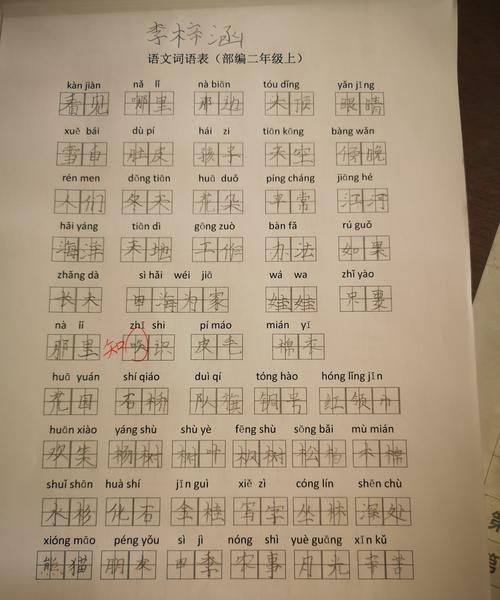 李梓涵
语文词语表（部编二年级上）
kàn jiàn nǎ lǐ nà biān tóu dǐng yǎn jīng
看见 哪里 那边 头顶 眼睛
xuě bái dù pí hái zi tiān kōng bàng wǎn
雪白 肚皮 孩子 天空 傍晚
rén men dōng tiān huā duǒ píng cháng jiāng hé
人们 冬天 花朵 平常 江河
hǎi yáng tiān dì gōng zuò bàn fǎ rú guǒ
海洋 天地 工作 办法 如果
zhǎng dà sì hǎi wéi jiā wá wa zhǐ yào
长大 四海为家 娃娃 只要
nà lǐ zhī shi pí máo mián yī
那里 知 识 皮毛 棉衣
huā yuán shí qiáo duì qí tóng hào hóng lǐng jīn
花园 石桥 队旗 铜号 红领巾
huān xiào yáng shù shù yè fēng shù sōng bǎi mù mián
欢笑 杨树 树叶 枫树 松柏 木棉
shuǐ shān huà shí jīn guì xiě zì cóng lín shēn chù
水杉 化石 金桂 写字 丛林 深处
xióng māo péng yǒu sì jì nóng shì yuè guāng xīn kǔ
熊猫 朋友 四季 农事 月光 辛苦